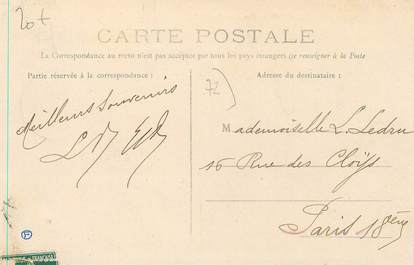 20+
CARTE POSTALE
La Correspondance au recto n'est pas acceptée par tous les pays étrangers (se renseigner à la Poste
Partie réservée à la correspondance :
Adresse du destinataire :
72)
Meilleurs Souvenirs
Mademoiselle L. Ledru
16 Rue des Cloÿs
Paris 18ème